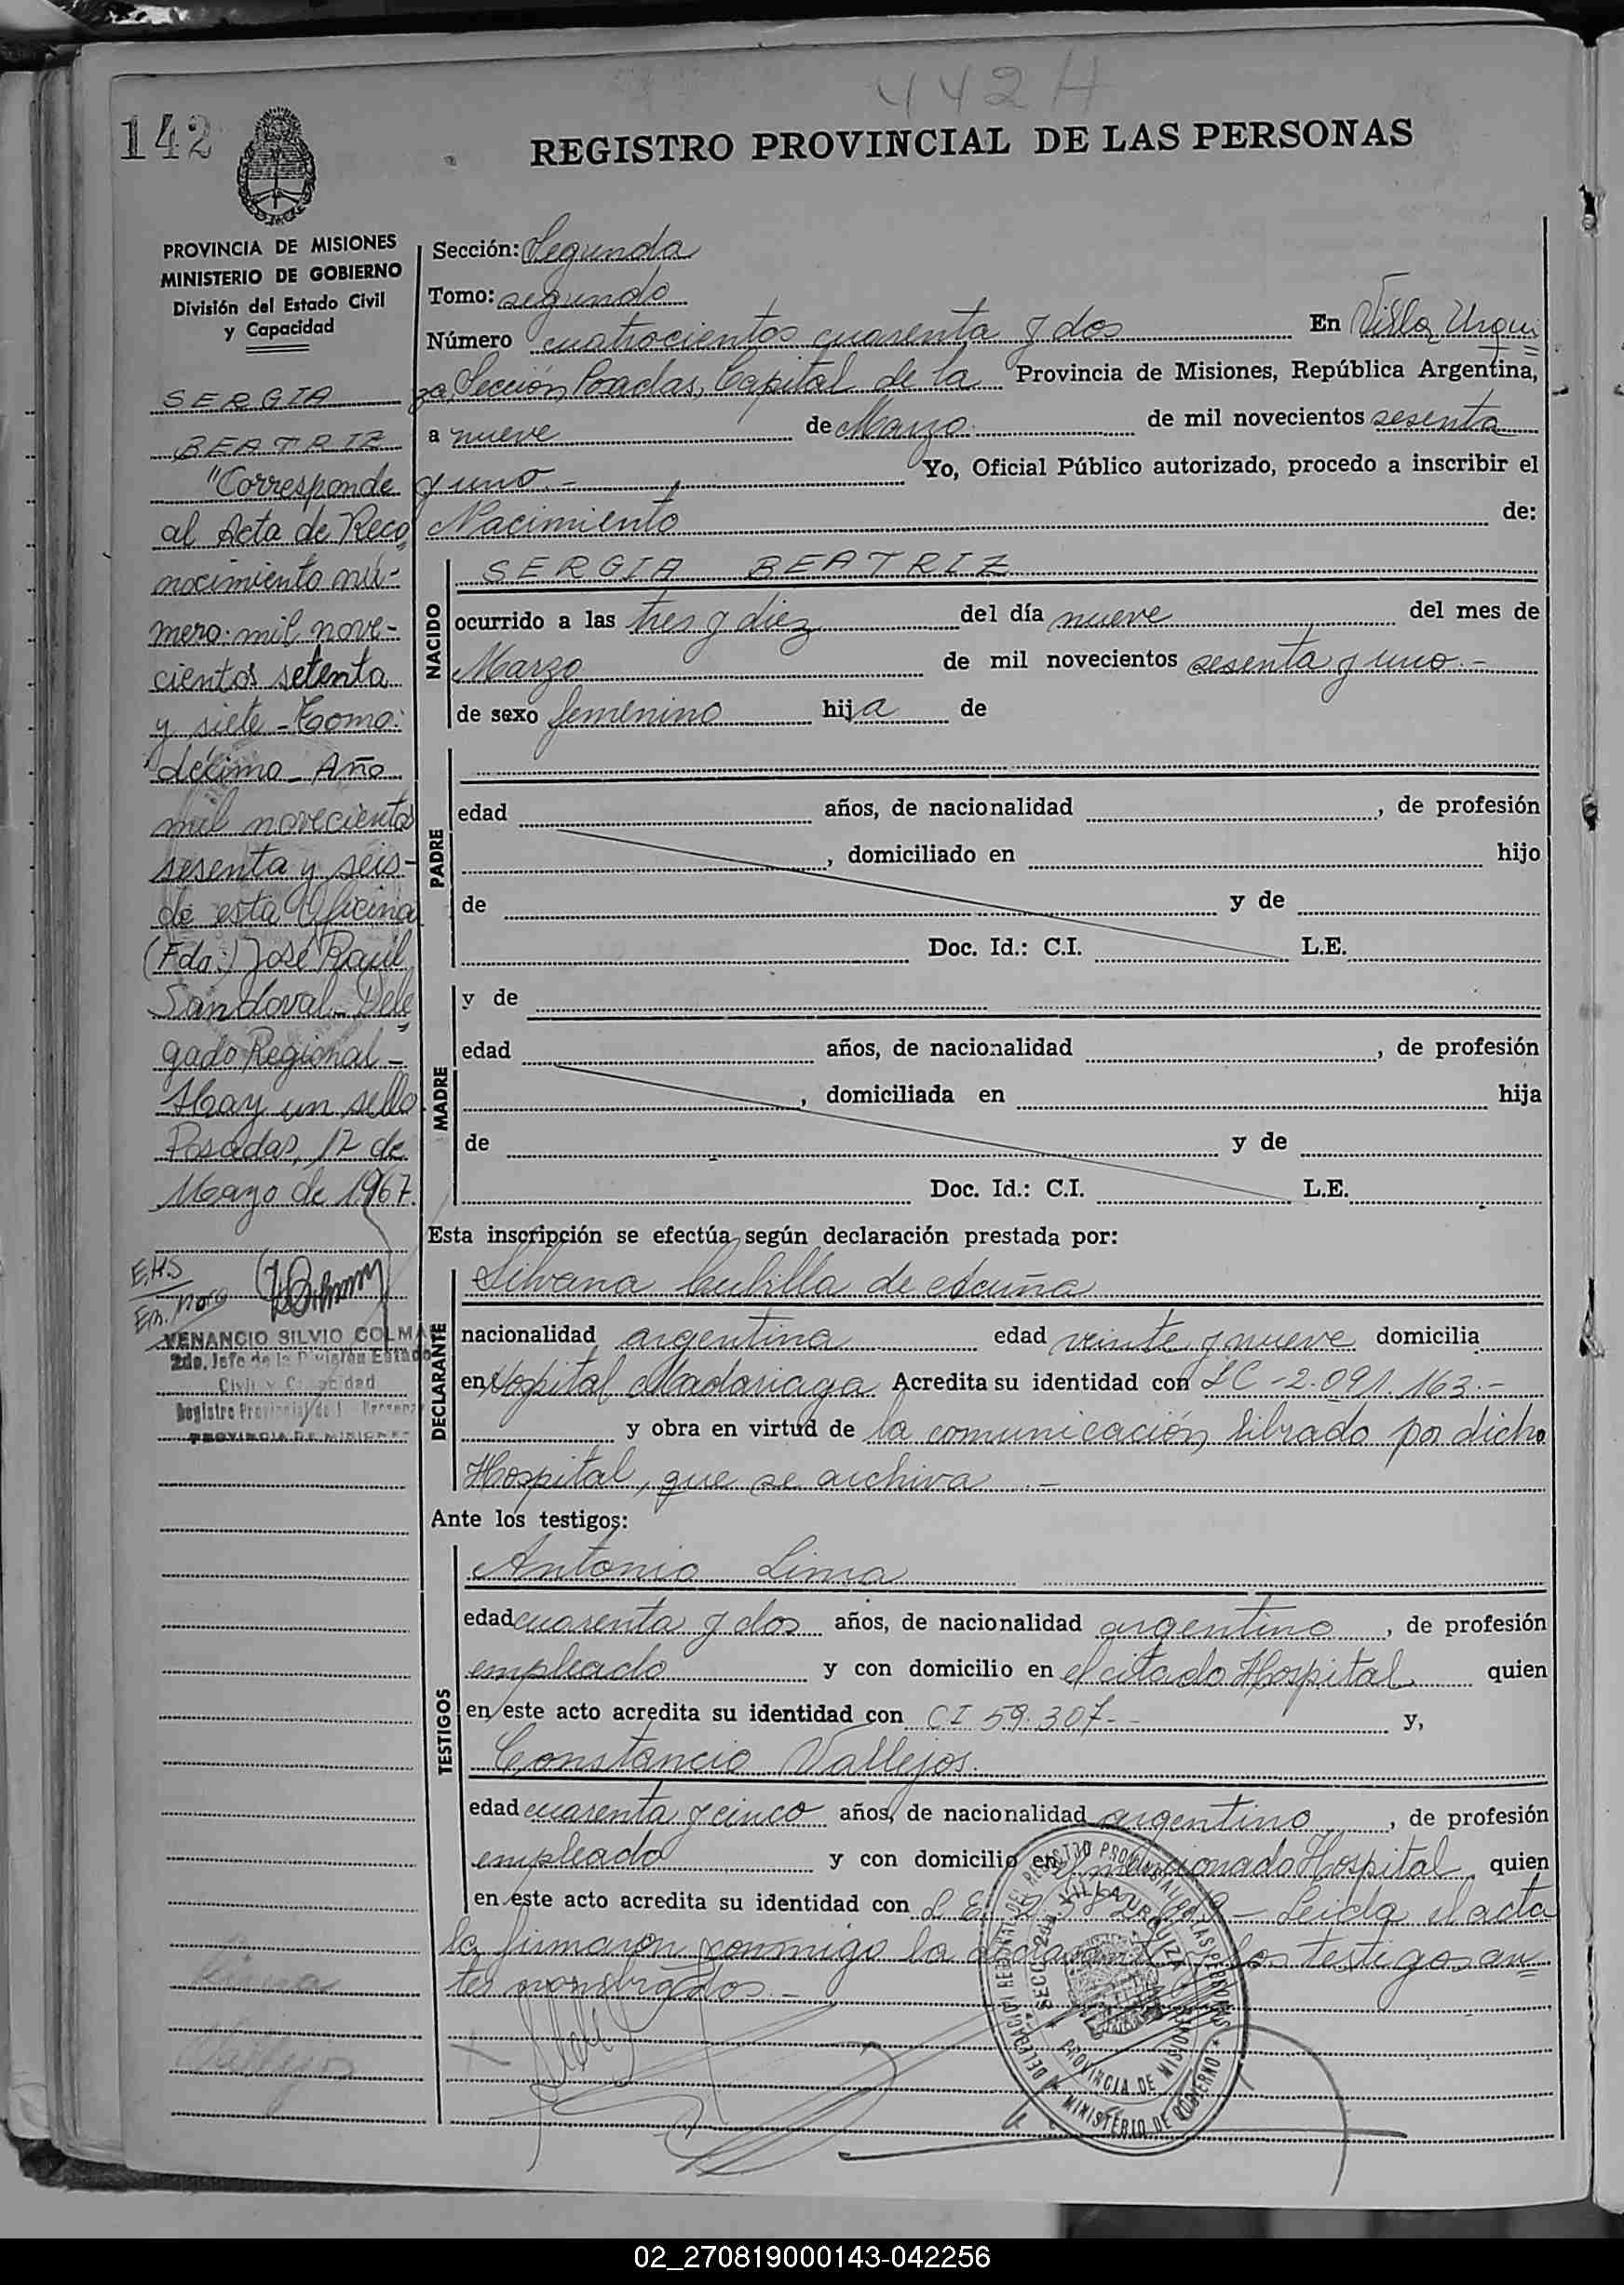 442 H
142
REGISTRO PROVINCIAL DE LAS PERSONAS
PROVINCIA DE MISIONES
MINISTERIO DE GOBIERNO
División del Estado Civil
y Capacidad
SERGIA
BEATRIZ
"Corresponde
al Acta de Reco
nocimiento nú-
mero: mil nove-
cientos setenta
y siete - Tomo:
décimo - Año
mil novecientos
sesenta y seis -
de esta Oficina
(Fdo:) José Raúl
Sandoval - Dele
gado Regional -
Hay un sello
Posadas, 12 de
Mayo de 1967.
E.H.S
VENANCIO SILVIO COLMA
2do. Jefe de la División Estado
Civil y Capacidad
Registro Provincial de l Person
PROVINCIA DE MISIONES
Sección: Segunda
Tomo: segundo
Número cuatrocientos cuarenta y dos En Villa Urqui
za, Sección Posadas, Capital de la Provincia de Misiones, República Argentina,
a nueve de Marzo de mil novecientos sesenta
y uno.- Yo, Oficial Público autorizado, procedo a inscribir el
Nacimiento de:
NACIDO
SERGIA BEATRIZ
ocurrido a las tres y diez del día nueve del mes de
Marzo de mil novecientos sesenta y uno.-
de sexo femenino hija de
PADRE
edad años, de nacionalidad , de profesión
, domiciliado en hijo
de y de
Doc. Id.: C.I. L.E.
MADRE
y de
edad años, de nacionalidad , de profesión
, domiciliada en hija
de y de
Doc. Id.: C.I. L.E.
Esta inscripción se efectúa según declaración prestada por:
DECLARANTE
Silvana Cubilla de Acuña
nacionalidad argentina edad veinte y nueve domicilia
en Hospital Madariaga Acredita su identidad con LC - 2.091.163.-
y obra en virtud de la comunicación librado por dicho
Hospital, que se archiva.-
Ante los testigos:
TESTIGOS
Antonio Lima
edad cuarenta y dos años, de nacionalidad argentino, de profesión
empleado y con domicilio en el citado Hospital quien
en este acto acredita su identidad con CI 59.307-- y,
Constancio Vallejos.
edad cuarenta y cinco años, de nacionalidad argentino, de profesión
empleado y con domicilio en el mencionado Hospital quien
en este acto acredita su identidad con L E. - Leida el acta
la firmaron conmigo la declarante y los testigos an=
tes nombrados.-
Lima
Vallejos
DELEGACION REGIONAL DEL REGISTRO PROVINCIAL DE LAS PERSONAS
SECC. 2da. VILLA URQUIZA
PROVINCIA DE MISIONES
MINISTERIO DE GOBIERNO
02_270819000143-042256